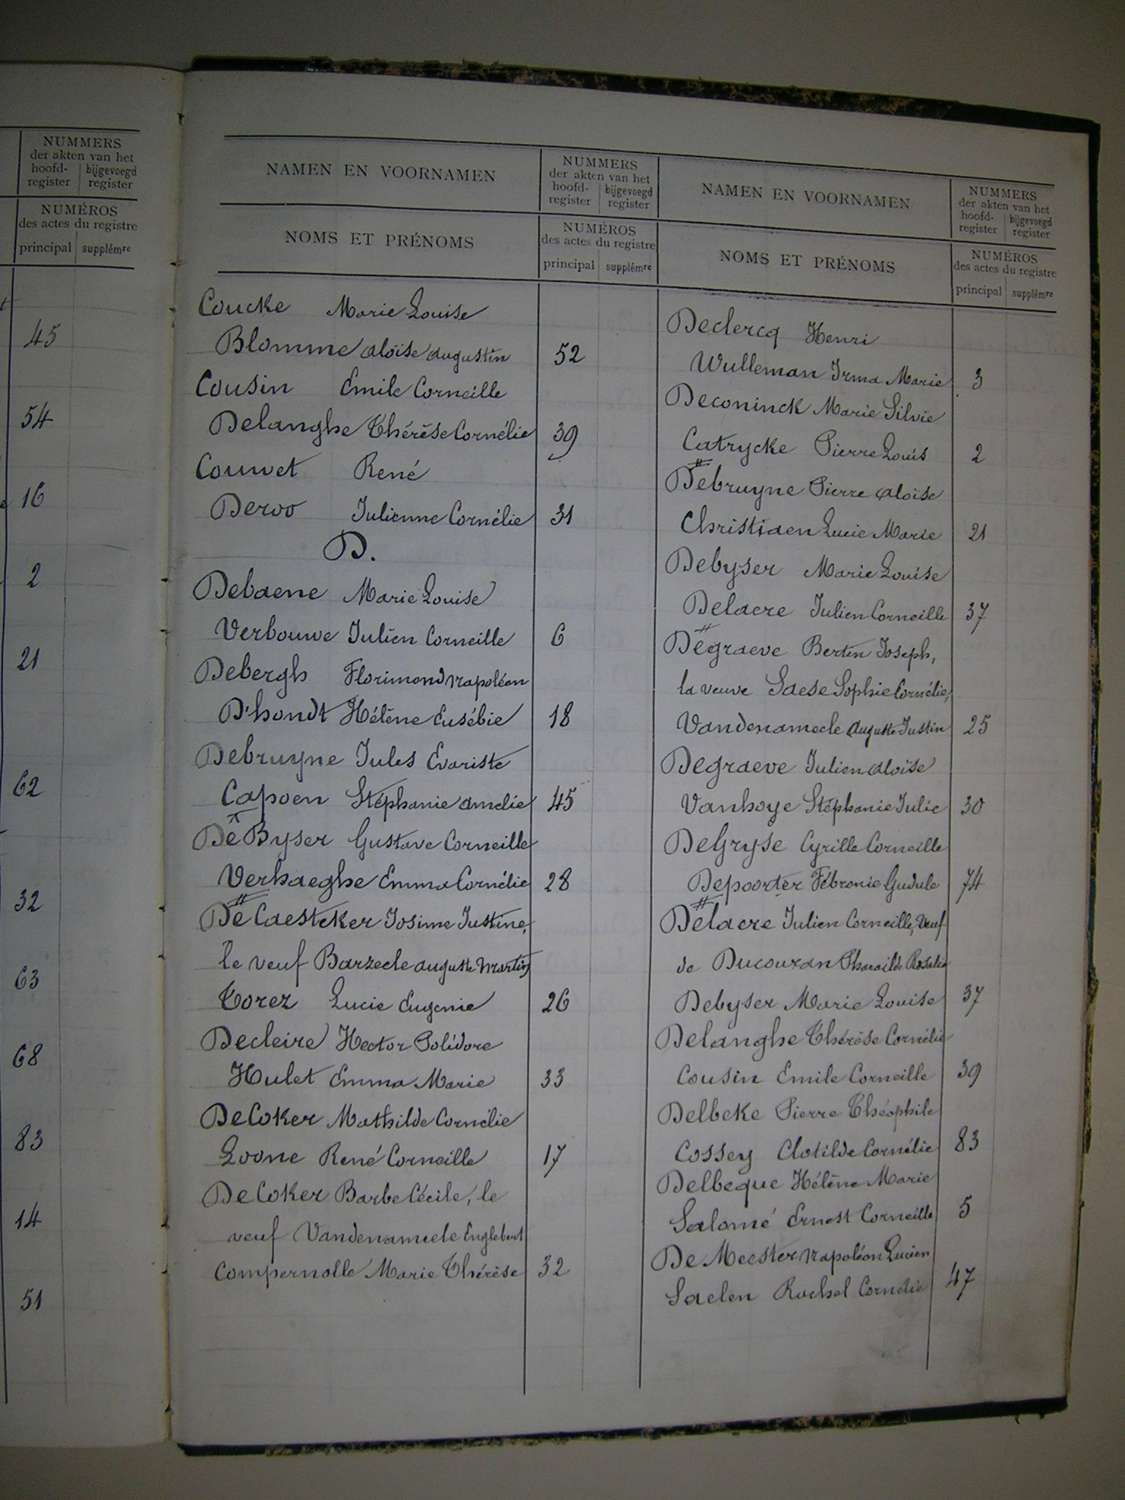 NUMMERS
der akten van het
hoofd- bijgevoegd
register register
NUMÉROS
des actes du registre
principal supplémre
45
54
16
2
21
62
32
63
68
83
14
51
NAMEN EN VOORNAMEN
NUMMERS
der akten van het
hoofd- bijgevoegd
register register
NOMS ET PRÉNOMS
NUMÉROS
des actes du registre
principal supplémre
Coucke Marie Louise
Blomme Aloïse Augustin 52
Cousin Emile Corneille
Delanghe Thérèse Cornélie 39
Couvet René
Deroo Julienne Cornélie 31
D.
Debaene Marie Louise
Verbouwe Julien Corneille 6
Debergh Florimond Napoléon
D'hondt Hélène Eusébie 18
Debruyne Jules Evariste
Capoen Stéphanie Amelie 45
De Byser Gustave Corneille
Verhaeghe Emma Cornélie 28
De Caesteker Josime Justine,
le veuf Barzeele Auguste Martin
Torez Lucie Eugenie 26
Decleire Hector Polidore
Hulet Emma Marie 33
De Coker Mathilde Cornélie
Loone René Corneille 17
De Coker Barbe Cécile, le
veuf Vandenameele Englebert
Compernolle Marie Thérèse 32
NAMEN EN VOORNAMEN
NUMMERS
der akten van het
hoofd- bijgevoegd
register register
NOMS ET PRÉNOMS
NUMÉROS
des actes du registre
principal supplémre
Declercq Henri
Wulleman Irma Marie 3
Deconinck Marie Silvie
Catrycke Pierre Louis 2
Debruyne Pierre Aloïse
Christiaen Lucie Marie 21
Debyser Marie Louise
Delacre Julien Corneille 37
Degraeve Bertin Joseph,
la veuve Saese Sophie Cornélie,
Vandenameele Auguste Justin 25
Degraeve Julien Aloïse
Vanhoye Stéphanie Julie 30
DeGryse Cyrille Corneille
Depoorter Fébronie Gudule 74
Delacre Julien Corneille, Veuf
de Ducouran Pharaïlde Rosalie
Debyser Marie Louise 37
Delanghe Thérèse Cornélie
Cousin Emile Corneille 39
Delbeke Pierre Théophile
Cossey Clotilde Cornélie 83
Delbeque Hélène Marie
Salomé Ernest Corneille 5
De Meester Napoléon Lucien
Saelen Rachel Cornélie 47